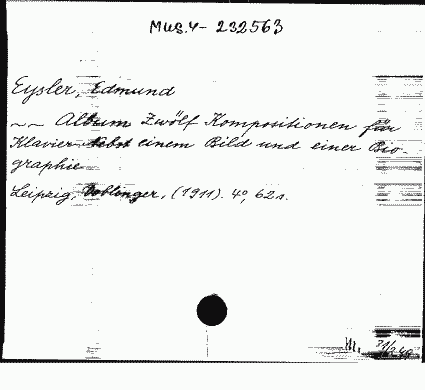 Mus. 4- 232563
Eysler, Edmund
~~ Album Zwölf Kompositionen für
Klavier nebst einem Bild und einer Bio-
graphie
Leipzig, Doblinger, (1911). 4°, 62 s.